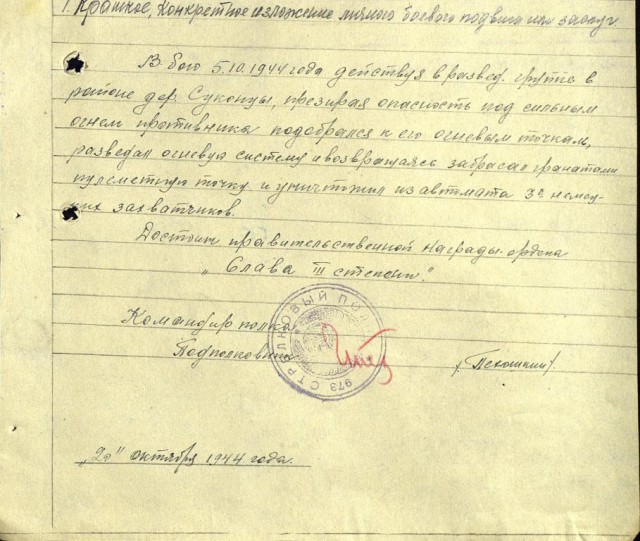 1. Краткое, конкретное изложение личного боевого подвига или заслуг
В бою 5.10.1944 года действуя в развед. группе в
районе дер. Суконцы, презирая опасность под сильным
огнем противника подобрался к его огневым точкам,
разведал огневую систему и возвращаясь забросал гранатами
пулеметную точку и уничтожил из автомата 3х немец-
ких захватчиков.
Достоин правительственной награды ордена
„Слава III степени".
Командир полка
Подполковник
973 СТРЕЛКОВЫЙ ПОЛК
„20" октября 1944 года.